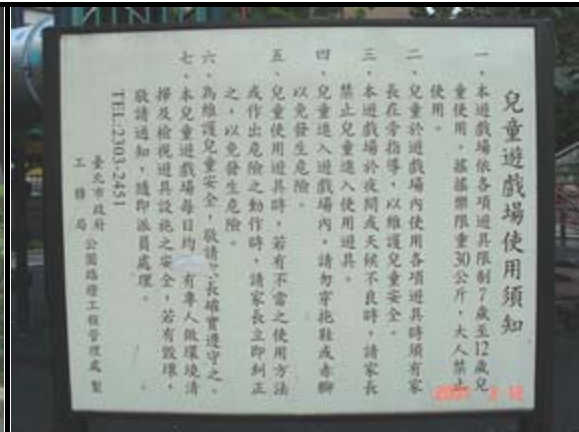 兒童遊戲場使用須知
一、本遊戲場依各項遊具限制7歲至12歲兒
童使用。搖搖樂限重30公斤，大人禁止
使用。
二、兒童於遊戲場內使用各項遊具時須有家
長在旁指導，以維護兒童安全。
三、本遊戲場於夜間或天候不良時，請家長
禁止兒童進入使用遊具。
四、兒童進入遊戲場內，請勿穿拖鞋或赤腳
以免發生危險。
五、兒童使用遊具時，若有不當之使用方法
或作出危險之動作時，請家長立即糾正
之，以免發生危險。
六、為維護兒童安全，敬請家長確實遵守之。
七、本兒童遊戲場每日均有專人做環境清
掃及檢視遊具設施之安全，若有毀壞，
敬請通知，隨即派員處理。
TEL:2303-2451
臺北市政府
工務局
公園路燈工程管理處 製